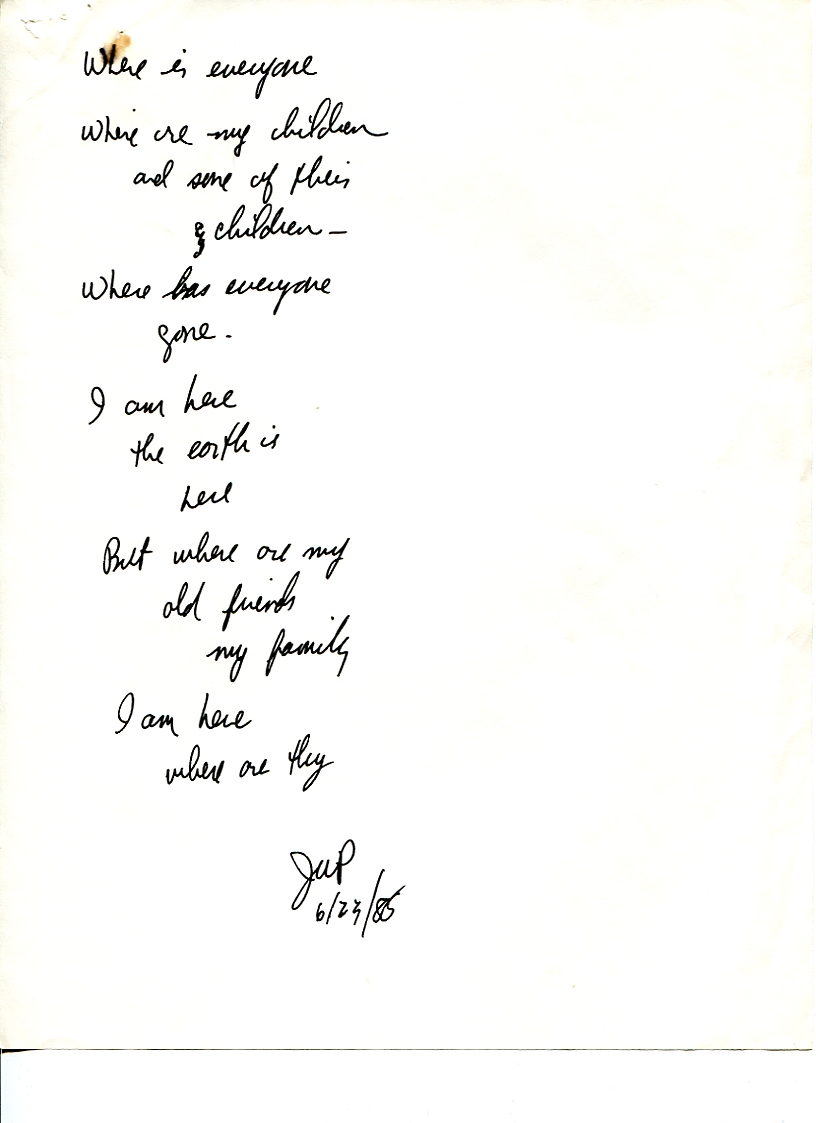 Where is everyone
Where are my children
and some of their
children –
Where has everyone
gone.
I am here
the earth is
here
But where are my
old friends
my family
I am here
where are they
JWP
6/23/85